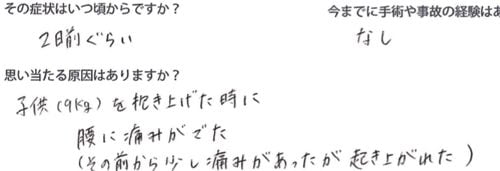 その症状はいつ頃からですか？ 今までに手術や事故の経験はあ
2日前ぐらい なし
思い当たる原因はありますか？
子供(9kg)を抱き上げた時に
腰に痛みがでた
(その前から少し痛みがあったが起き上がれた)